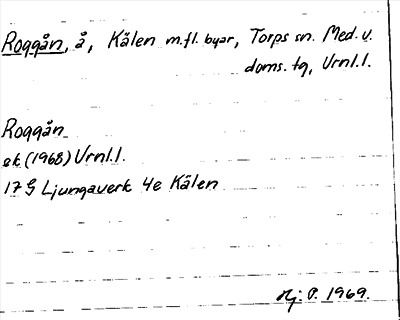 Roggån, å, Kälen m.fl. byar, Torps sn. Med. v.
doms. tg, Vrnl. l.
Roggån
ek. (1968) Vrnl. l.
17 G Ljungaverk 4e Kälen
Hj. P. 1969.